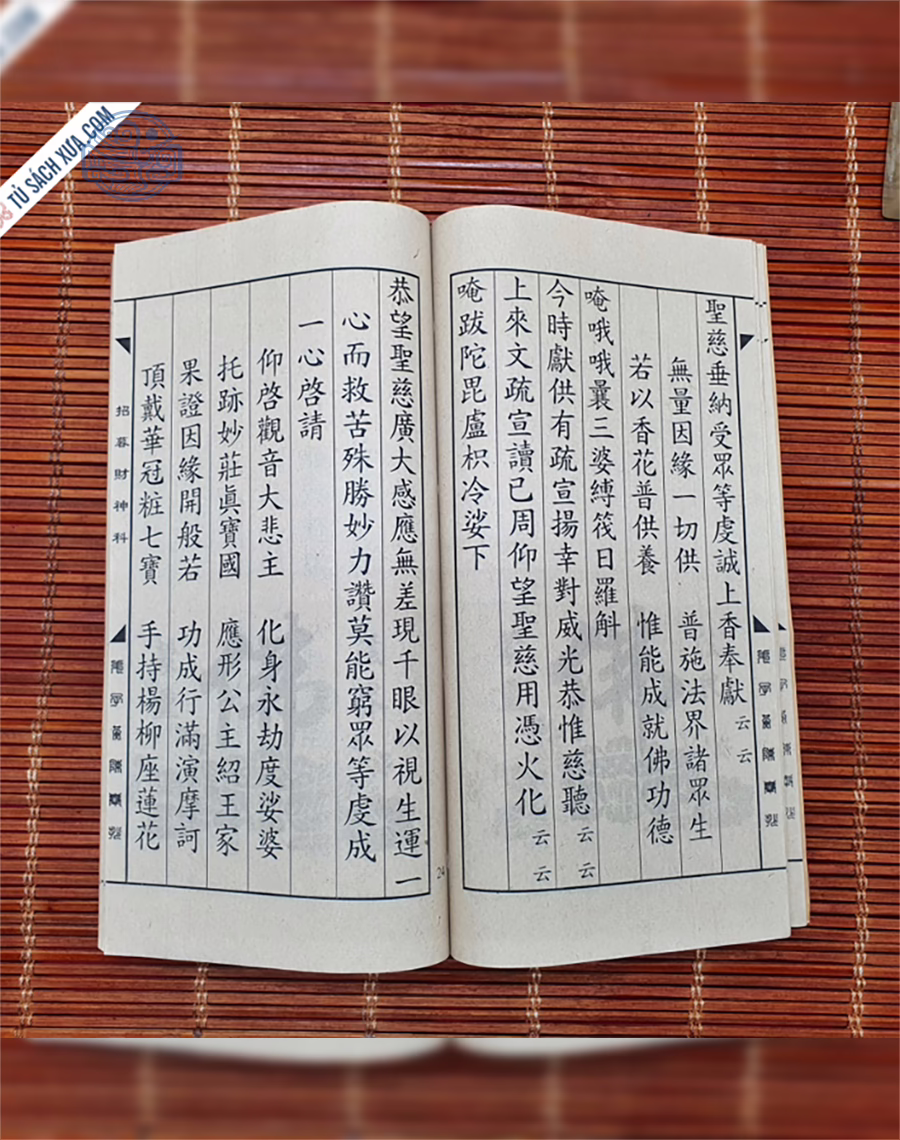 TỦ SÁCH XƯA.COM
聖慈垂納受眾等虔誠上香奉獻云云
無量因緣一切供 普施法界諸眾生
若以香花普供養 惟能成就佛功德
唵哦哦曩三婆縛筏日羅斛
今時獻供有疏宣揚幸對威光恭惟慈聽云云
上來文疏宣讀已周仰望聖慈用憑火化云云
唵跋陀毘盧枳冷娑下
24
恭望聖慈廣大感應無差現千眼以視生運一
心而救苦殊勝妙力讚莫能窮眾等虔成
一心啓請
仰啓觀音大悲主 化身永劫度娑婆
托跡妙莊眞寶國 應形公主紹王家
果證因緣開般若 功成行滿演摩訶
頂戴華冠粧七寶 手持楊柳座蓮花
招募財神科